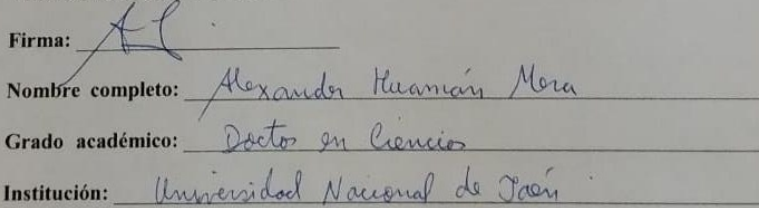 Firma:
Nombre completo: Alexander Huamán Mera
Grado académico: Doctor en Ciencias
Institución: Universidad Nacional de Jaén